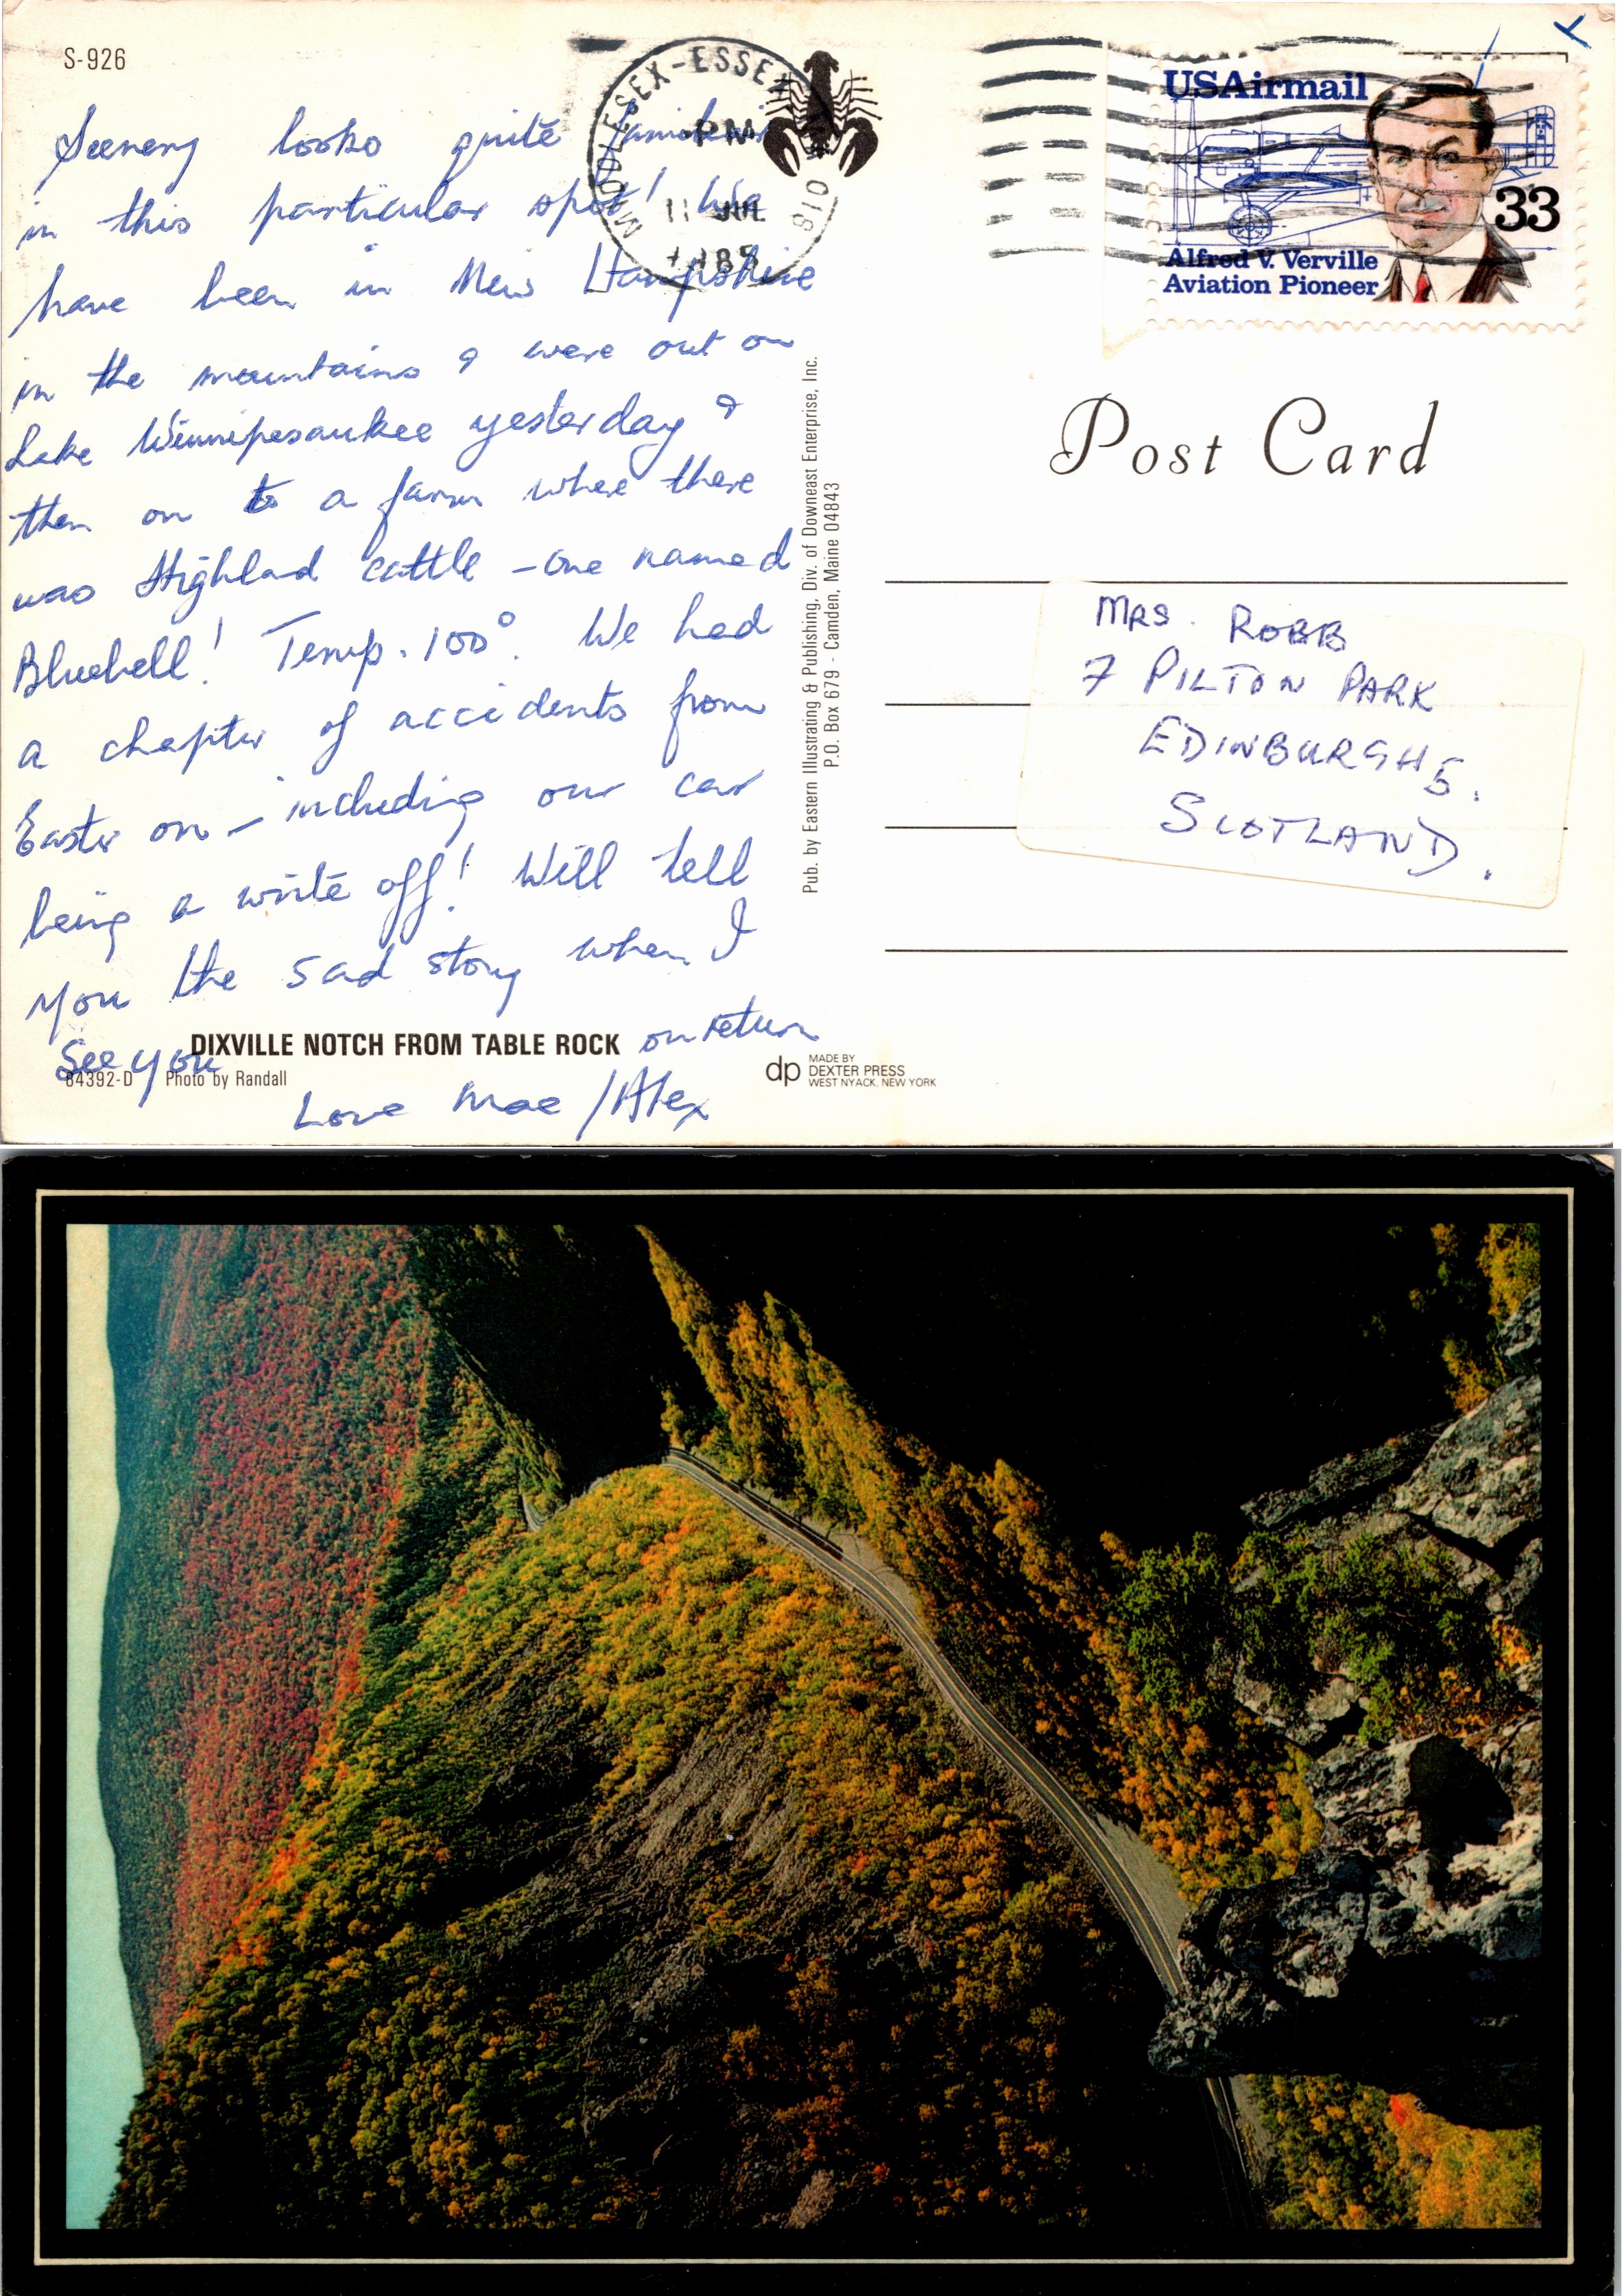 S-926
MIDDLESEX-ESSEX
PM
11 JUL
1985
018
USAirmail
33
Alfred V. Verville
Aviation Pioneer
Scenery looks quite familiar
in this particular spot! We
have been in New Hampshire
in the mountains & were out on
Lake Winnipesaukee yesterday &
then on to a farm where there
was Highland cattle - one named
Bluebell! Temp. 100°. We had
a chapter of accidents from
Easter on - including our car
being a write off! Will tell
you the sad story when I
see you on return
Love Mae / Alex
DIXVILLE NOTCH FROM TABLE ROCK
84392-D Photo by Randall
Pub. by Eastern Illustrating & Publishing, Div. of Downeast Enterprise, Inc.
P.O. Box 679 - Camden, Maine 04843
dp MADE BY
DEXTER PRESS
WEST NYACK, NEW YORK
Post Card
MRS. ROBB
7 PILTON PARK
EDINBURGH 5.
SCOTLAND.